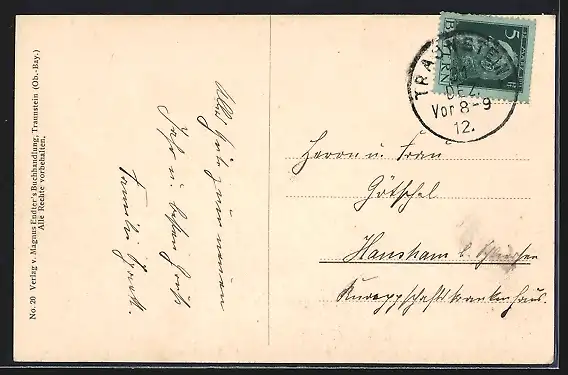 No. 20 Verlag v. Magnus Endter's Buchhandlung, Traunstein (Ob.-Bay.)
Alle Rechte vorbehalten.
Alles Gute zum neuen
Jahr u. besten Gruß
Familie
5
BAYERN
TRAUNSTEIN
DEZ.
Vor 8-9
12.
Herrn u. Frau
Götschel
Hausham b. Schliersee
Knappschaftskrankenhaus.